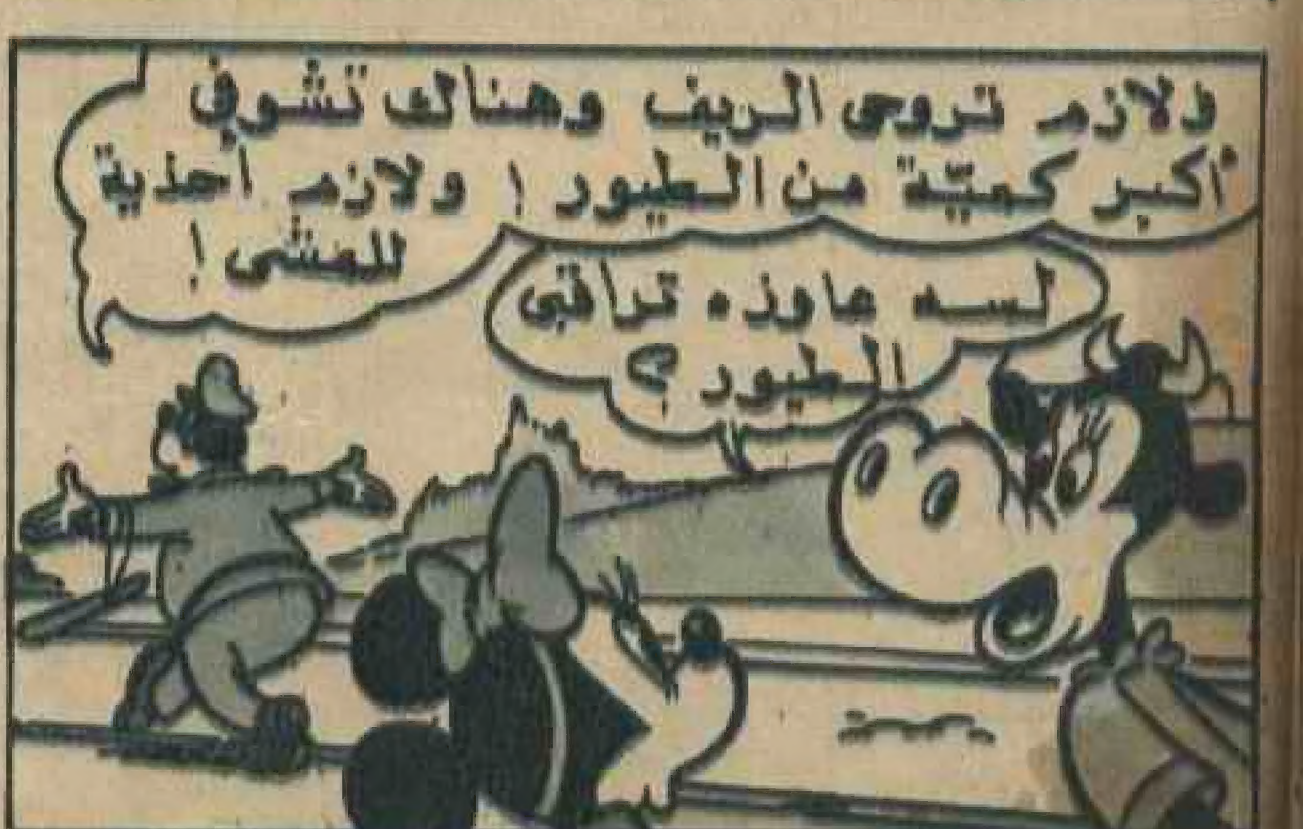 ولازم تروحى الريف وهناك تشوفى
أكبر كميّة من الطيور ! ولازم أحذية
للمشى !
لسه عاوزه تراقبى
الطيور ؟